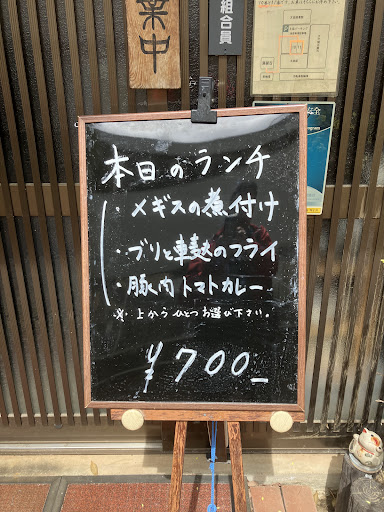 業中
組合員
本日のランチ
・メギスの煮付け
・ブリと車麩のフライ
・豚肉トマトカレー
※上からひとつお選び下さい。
¥700_